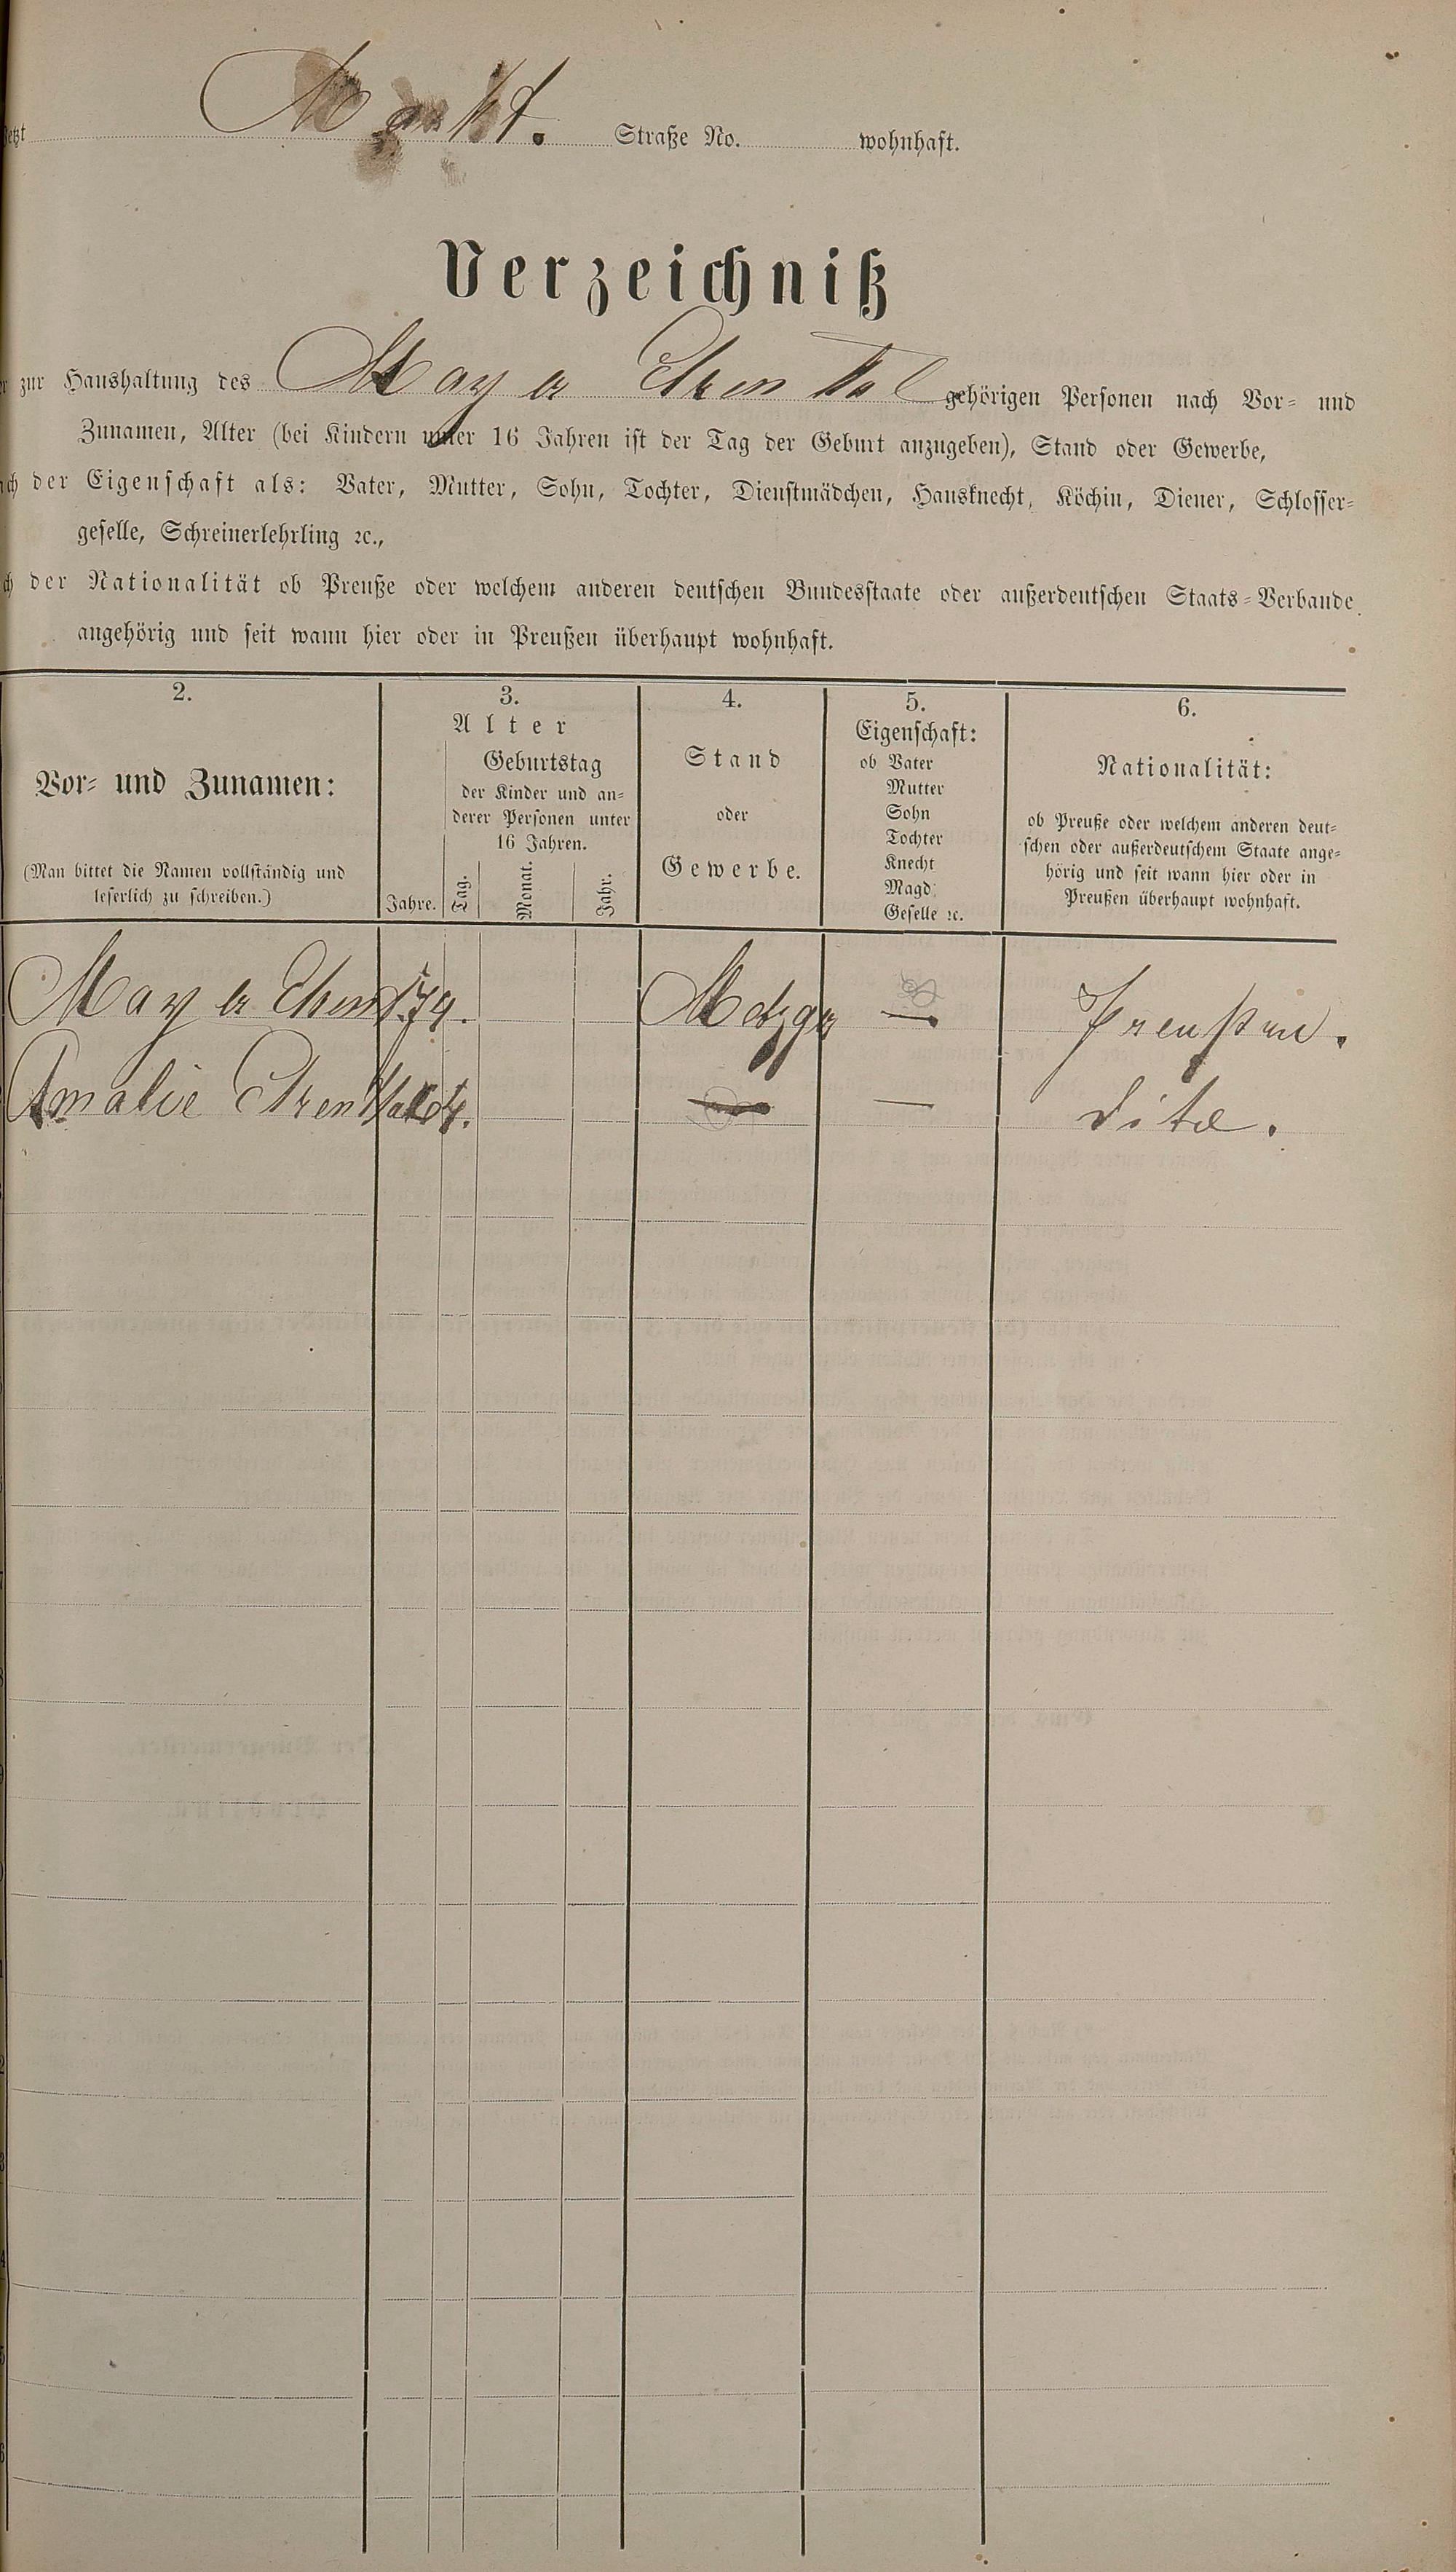 jetzt Markt. Straße No. wohnhaft.
Verzeichniß
zur Haushaltung des Mayer gehörigen Personen nach Vor- und
Zunamen, Alter (bei Kindern unter 16 Jahren ist der Tag der Geburt anzugeben), Stand oder Gewerbe,
der Eigenschaft als: Vater, Mutter, Sohn, Tochter, Dienstmädchen, Hausknecht, Köchin, Diener, Schlosser-
geselle, Schreinerlehrling ꝛc.,
der Nationalität ob Preuße oder welchem anderen deutschen Bundesstaate oder außerdeutschen Staats-Verbande
angehörig und seit wann hier oder in Preußen überhaupt wohnhaft.
2. 3. 4. 5. 6.
Vor- und Zunamen:
(Man bittet die Namen vollständig und
leserlich zu schreiben.)
Alter
Jahre.
Geburtstag
der Kinder und an-
derer Personen unter
16 Jahren.
Tag. Monat. Jahr.
Stand
oder
Gewerbe.
Eigenschaft:
ob Vater
Mutter
Sohn
Tochter
Knecht
Magd
Geselle ꝛc.
Nationalität:
ob Preuße oder welchem anderen deut-
schen oder außerdeutschem Staate ange-
hörig und seit wann hier oder in
Preußen überhaupt wohnhaft.
Mayer 79. Metzger — Preußen.
Amalie — — dito.